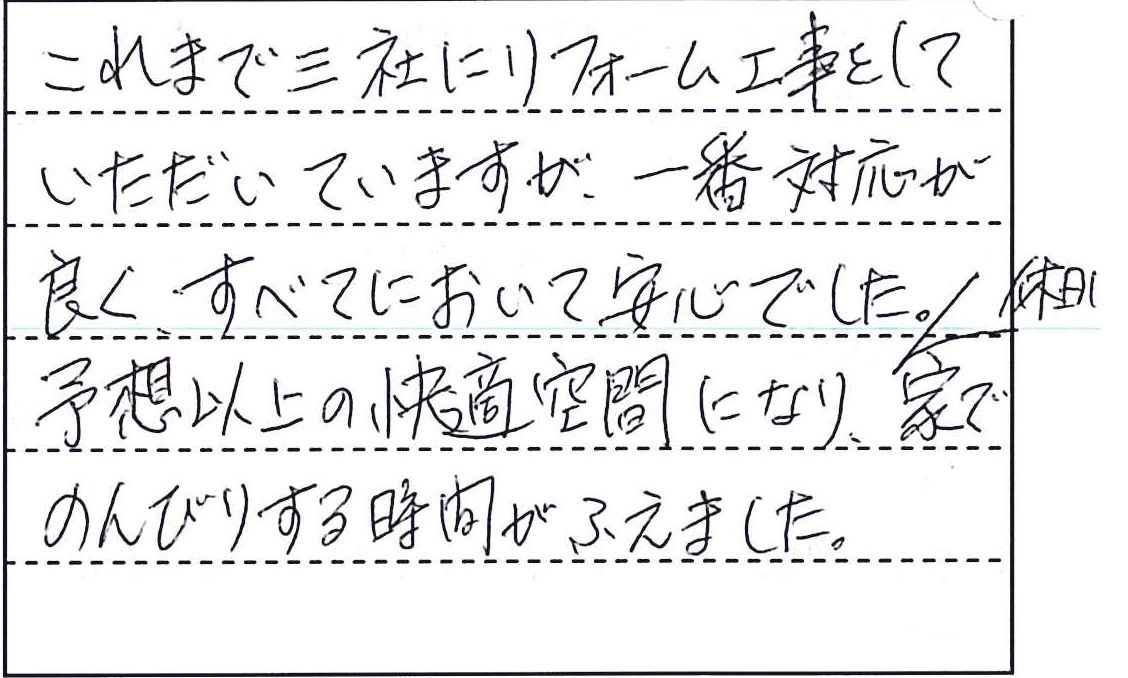 これまで三社にリフォーム工事をして
いただいていますが、一番対応が
良く、すべてにおいて安心でした。
休日
予想以上の快適空間になり、家で
のんびりする時間がふえました。